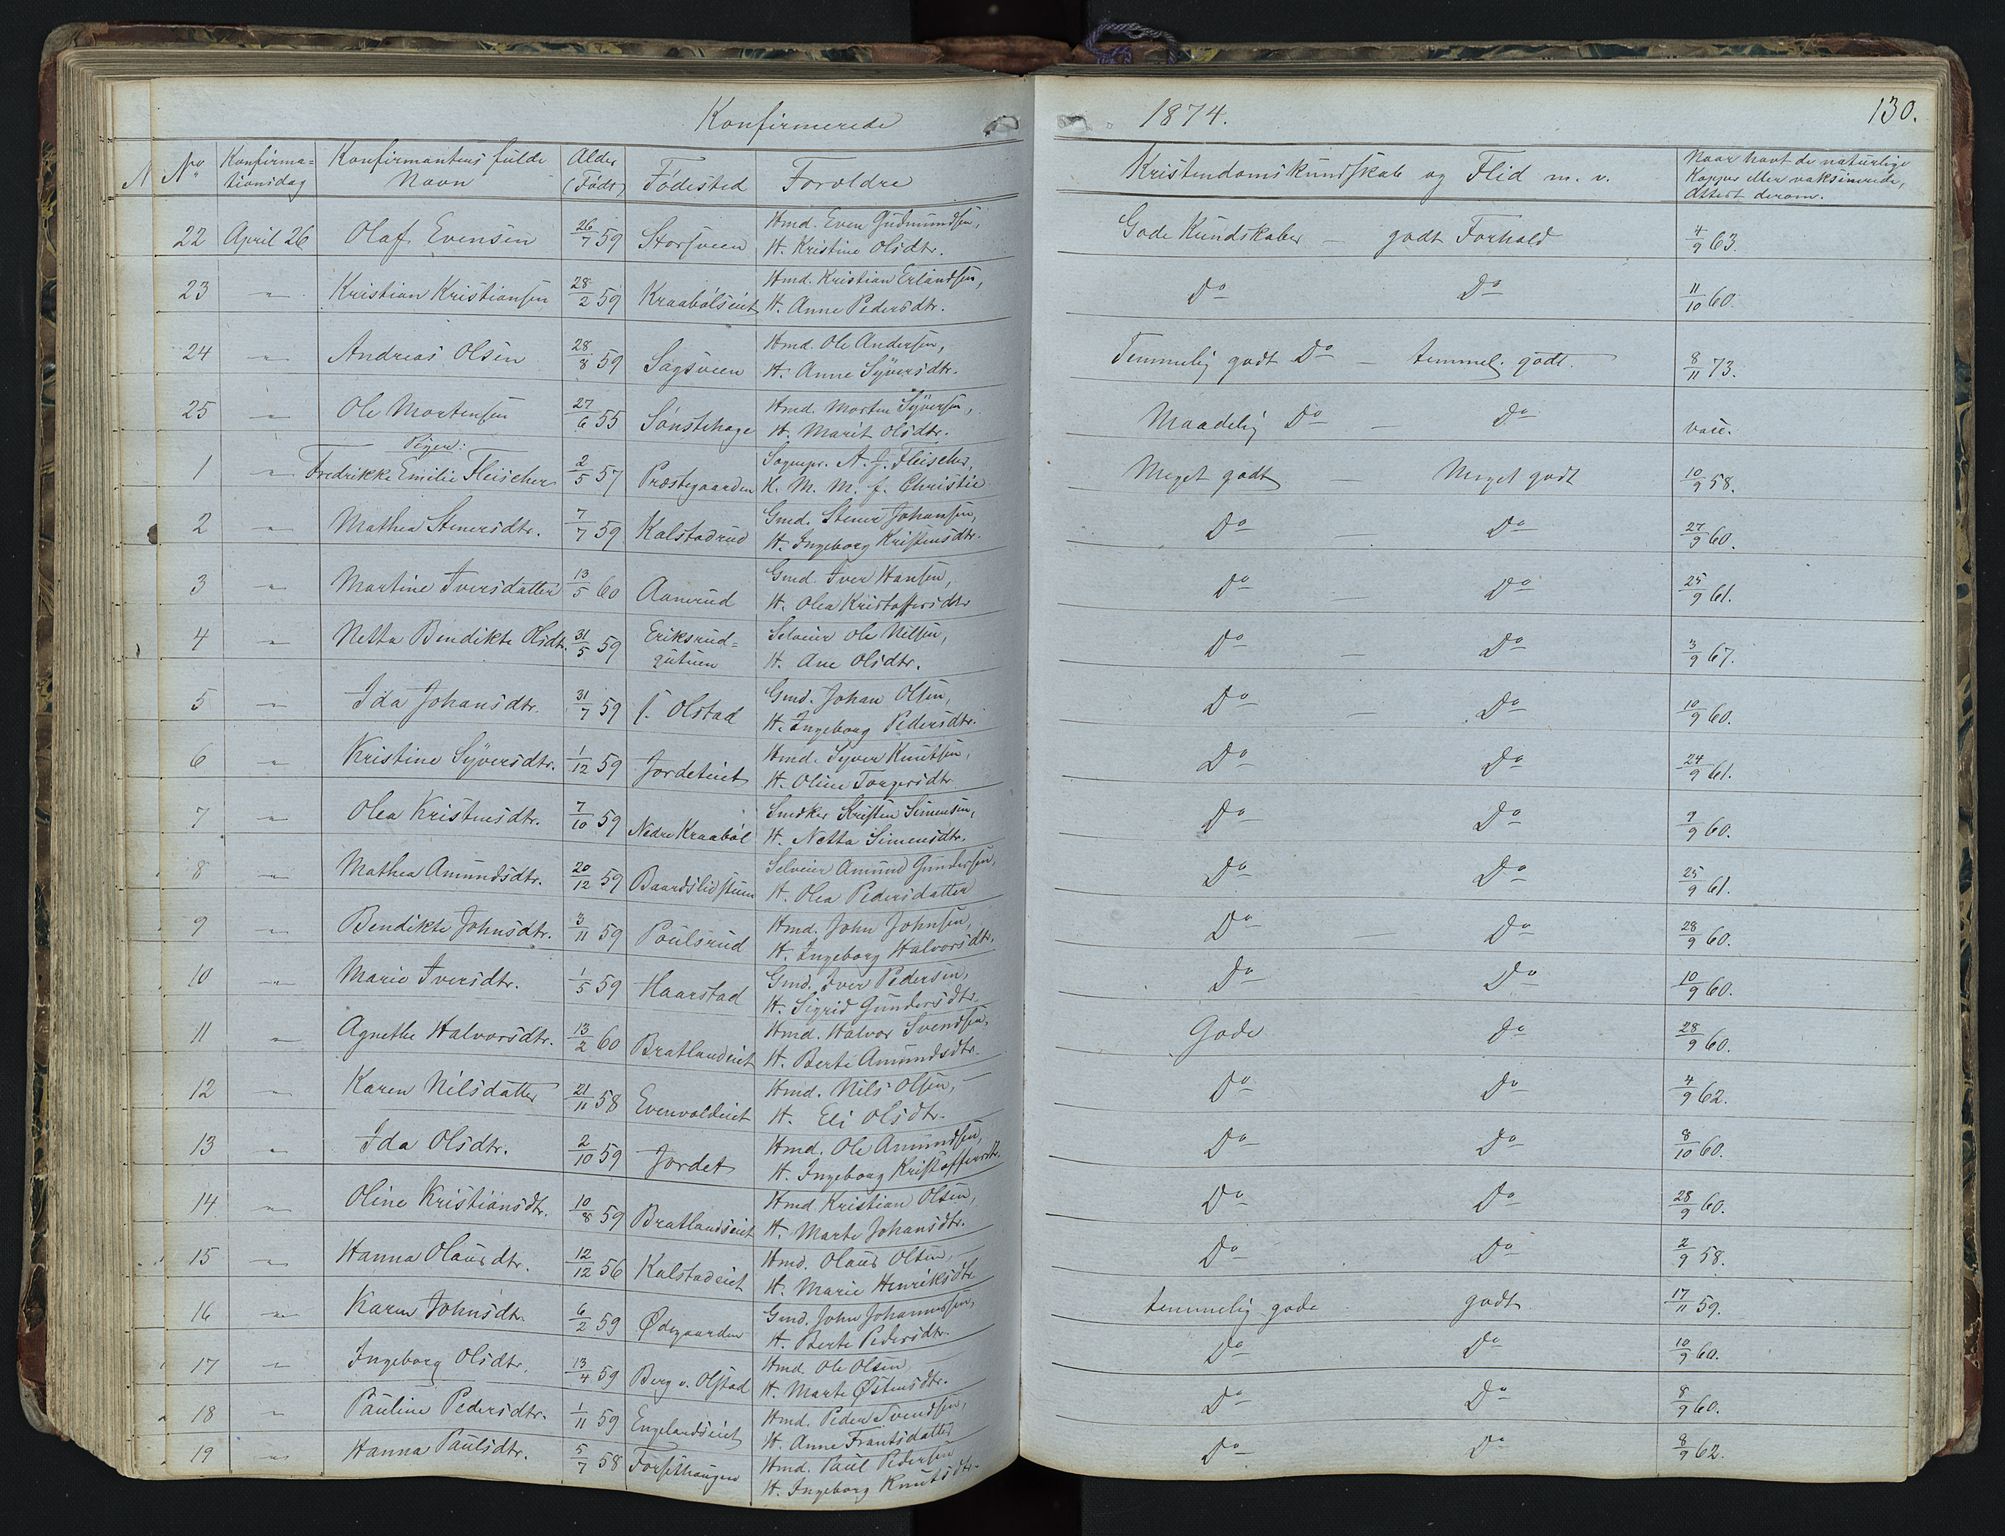 Konfirmerede 1874. 130.
No Konfirma-tionsdag Konfirmantens fulde Navn Alder (Født) Fødested Forældre Kristendomskundskab og Flid m. v. Naar havt de naturlige Kopper eller vaksinerede, Attest derom.
22 April 26 Olaf Evensen 26/7 59 Storsveen Hmd. Even Gudmundsen, Gode Kundskaber — godt Forhold 4/9 63.
H. Kristine Olsdtr.
23 " Kristian Kristiansen 28/2 59 Kraabølseiet Hmd. Kristian Erlandsen, Do Do 11/10 60.
H. Anne Pedersdtr.
24 " Andreas Olsen 28/8 59 Sagsveen Hmd. Ole Andersen, Temmelig godt Do — temmel. godt. 8/11 73.
H. Anne Syversdtr.
25 " Ole Mortensen 27/6 55 Sønstehage Hmd. Morten Syversen, Maadelig Do — Do vacc.
H. Marit Olsdtr.
Piger:
1 " Fredrikke Emilie Fleischer 2/5 57 Præstegaarden Sognepr. A. J. Fleischer, Meget godt — Meget godt 10/9 58.
H. M. M. f. Christie
2 " Mathea Stenersdtr. 7/7 59 Kalstadrud Gmd. Stener Johansen, Do Do 27/9 60.
H. Ingeborg Kristensdtr.
3 " Martine Iversdatter 13/5 60 Aamrud Gmd. Iver Hansen, Do Do 25/9 61.
H. Olea Kristoffersdtr
4 " Netta Bendikte Olsdtr. 31/5 59 Eriksrud- Selveier Ole Nilsen, Do — Do 3/9 67.
gutuen H. Ane Olsdtr.
5 " Ida Johansdtr. 31/7 59 s. Olstad Gmd. Johan Olsen, Do — Do 10/9 60.
H. Ingeborg Pedersdtr.
6 " Kristine Syversdtr. 1/12 59 Jordeteiet Hmd. Syver Knutsen, Do Do 24/9 61.
H. Oline Torgersdtr
7 " Olea Kristensdtr. 7/10 59 Nedre Kraabøl Snedker Kristen Simensen, Do Do 7/9 60.
H. Netta Simensdtr.
8 " Mathea Amundsdtr. 20/12 59 Baardslistuen Selveier Amund Gundersen, Do Do 25/9 61.
H. Olea Pedersdatter
9 " Bendikte Johnsdtr. 3/11 59 Poulsrud Hmd. John Johnsen, Do — Do 28/9 60.
H. Ingeborg Halvorsdtr.
10 " Marie Iversdtr. 1/5 59 Haarstad Gmd. Iver Pedersen, Do Do 10/9 60.
H. Sigrid Gundersdtr.
11 " Agnethe Halvorsdtr. 13/2 60 Bratlandeiet Hmd. Halvor Svendsen, Gode do 28/9 60.
H. Berte Amundsdtr.
12 " Karen Nilsdatter 21/11 58 Evenvoldeiet Hmd. Nils Olsen, Do Do 4/9 62.
H. Eli Olsdtr.
13 " Ida Olsdtr. 2/10 59 Jordet Hmd. Ole Amundsen, Do Do 8/10 60.
H. Ingeborg Kristoffersdtr.
14 " Oline Kristiansdtr. 10/8 59 Bratlandseiet Hmd. Kristian Olsen, Do Do 28/9 60.
H. Marte Johansdtr.
15 " Hanna Olausdtr. 12/12 56 Kalstadeiet Hmd. Olaus Olsen, Do Do 2/9 58.
H. Marie Henriksdtr
16 " Karen Johnsdtr. 6/2 59 Ødegaarden Gmd. John Johannessen, temmelig gode godt 17/11 59.
H. Berte Pedersdtr.
17 " Ingeborg Olsdtr. 13/4 59 Berg v. Olstad Hmd. Ole Olsen, Do Do 10/9 60.
H. Marte Østensdtr.
18 " Pauline Pedersdtr. 1/11 59 Engelandseiet Hmd. Peder Svendsen, Do Do 8/9 60.
H. Anne Frantsdatter
19 " Hanna Paulsdtr. 5/7 58 Forsethaugen Hmd. Paul Pedersen Do Do 8/9 62.
H. Ingeborg Knutsdtr.